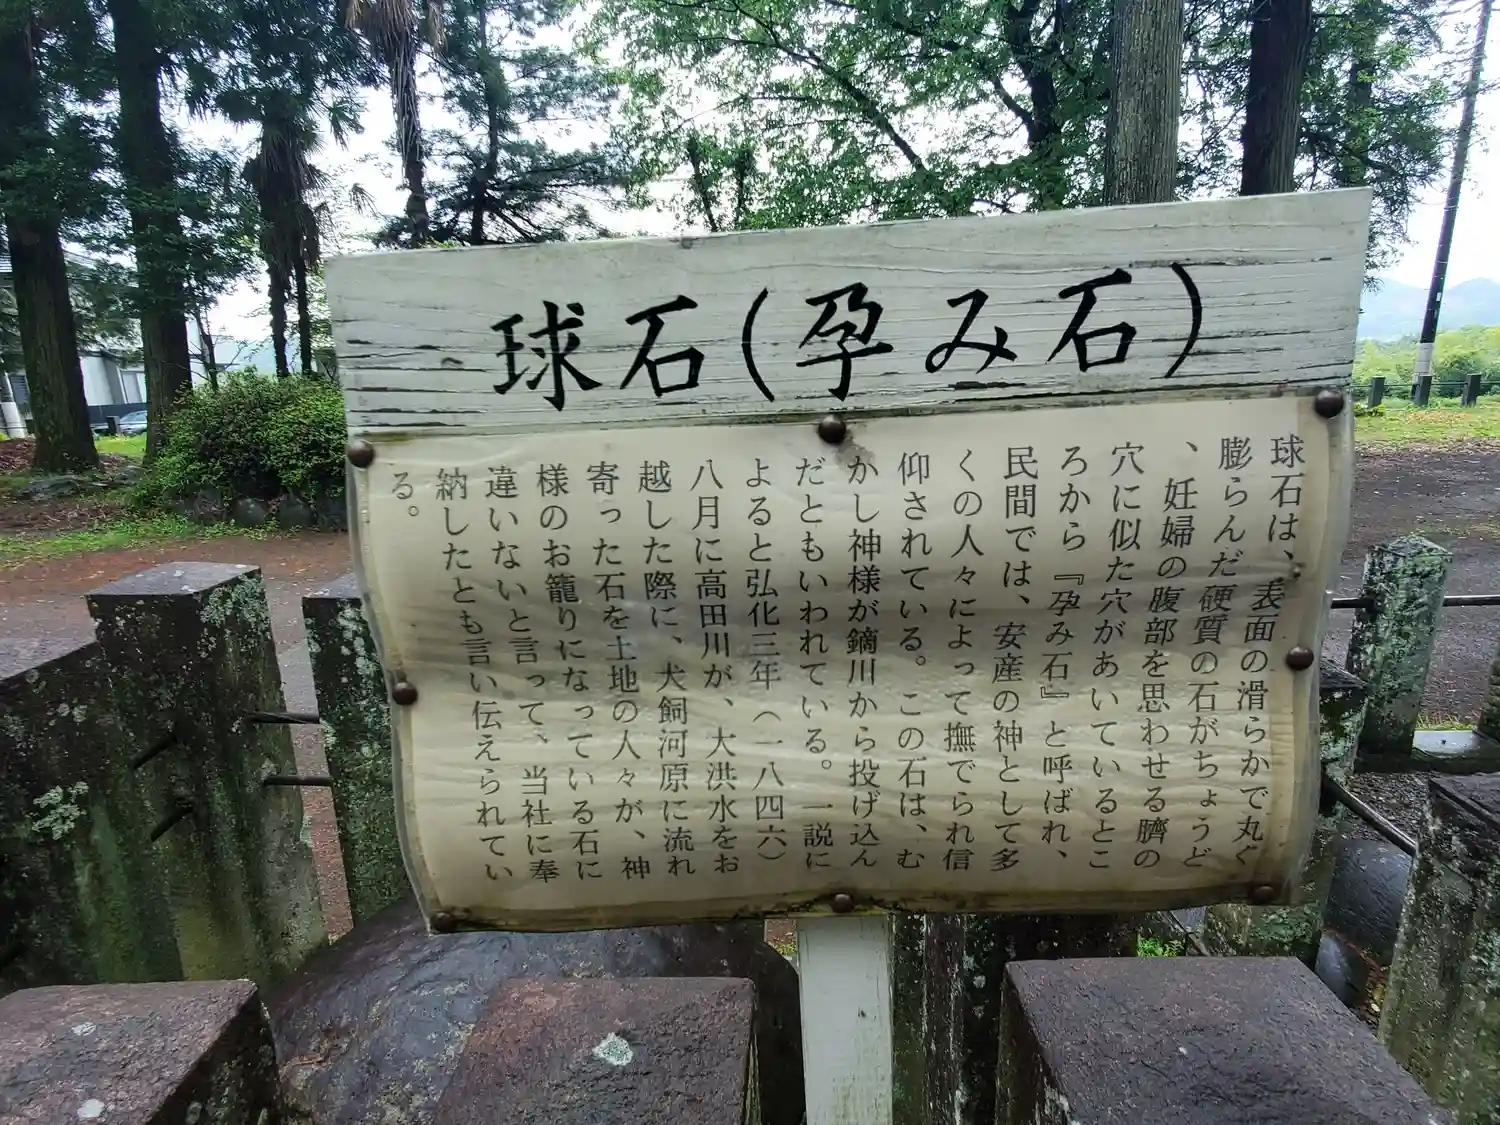 球石(孕み石)
球石は、表面の滑らかで丸ぐ
膨らんだ硬質の石がちょうど
、妊婦の腹部を思わせる臍の
穴に似た穴があいているとこ
ろから『孕み石』と呼ばれ、
民間では、安産の神として多
くの人々によって撫でられ信
仰されている。この石は、む
かし神様が鏑川から投げ込ん
だともいわれている。一説に
よると弘化三年（一八四六）
八月に高田川が、大洪水をお
越した際に、犬飼河原に流れ
寄った石を土地の人々が、神
様のお籠りになっている石に
違いないと言って、当社に奉
納したとも言い伝えられてい
る。